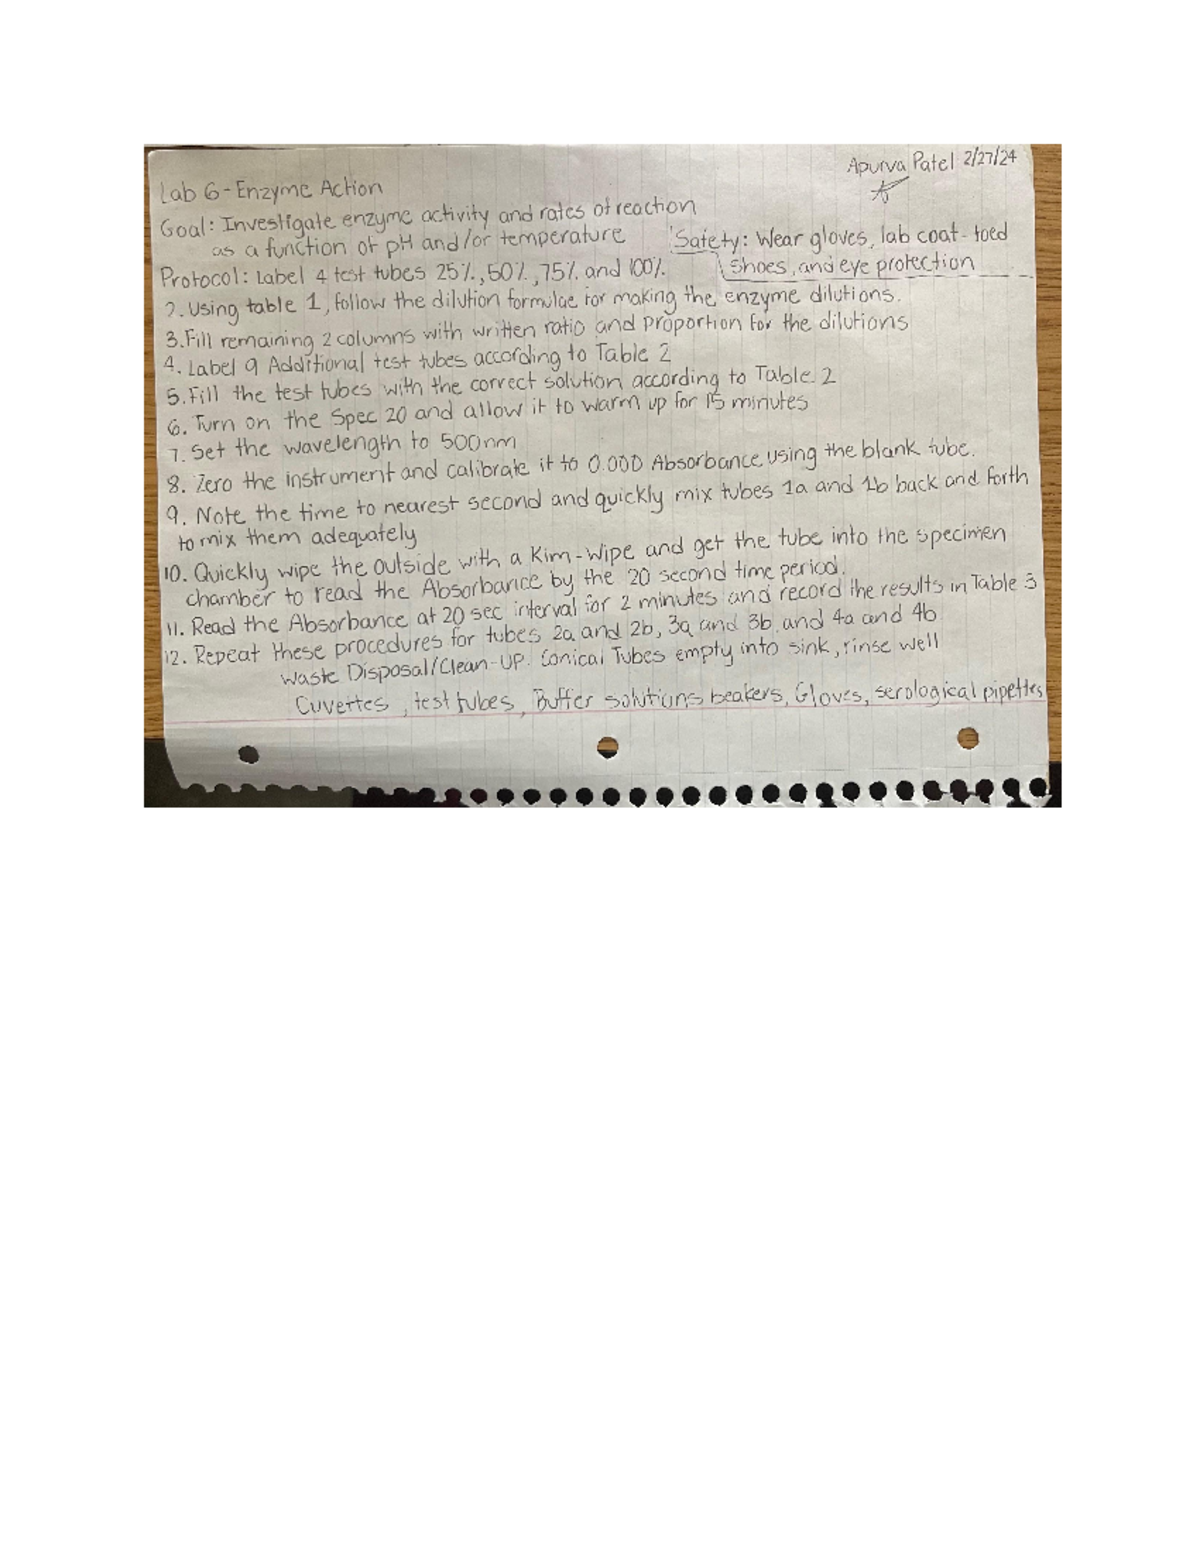 Apurva Patel 2/27/24
Lab 6-Enzyme Action
Goal: Investigate enzyme activity and rates of reaction
as a function of pH and/or temperature
Safety: Wear gloves, lab coat-toed
shoes, and eye protection
Protocol: Label 4 test tubes 25%, 50%, 75% and 100%.
2. Using table 1, follow the dilution formulae for making the enzyme dilutions.
3. Fill remaining 2 columns with written ratio and proportion for the dilutions
4. Label 9 Additional test tubes according to Table 2
5. Fill the test tubes with the correct solution according to Table 2
6. Turn on the Spec 20 and allow it to warm up for 15 minutes
7. Set the wavelength to 500nm
8. Zero the instrument and calibrate it to 0.000 Absorbance using the blank tube.
9. Note the time to nearest second and quickly mix tubes 1a and 1b back and forth
to mix them adequately
10. Quickly wipe the outside with a Kim-Wipe and get the tube into the specimen
chamber to read the Absorbance by the 20 second time period.
11. Read the Absorbance at 20 sec interval for 2 minutes and record the results in Table 3
12. Repeat these procedures for tubes 2a and 2b, 3a and 3b, and 4a and 4b
Waste Disposal/Clean-UP: Conical Tubes empty into sink, rinse well
Cuvettes, test tubes, Buffer solutions beakers, Gloves, serological pipettes